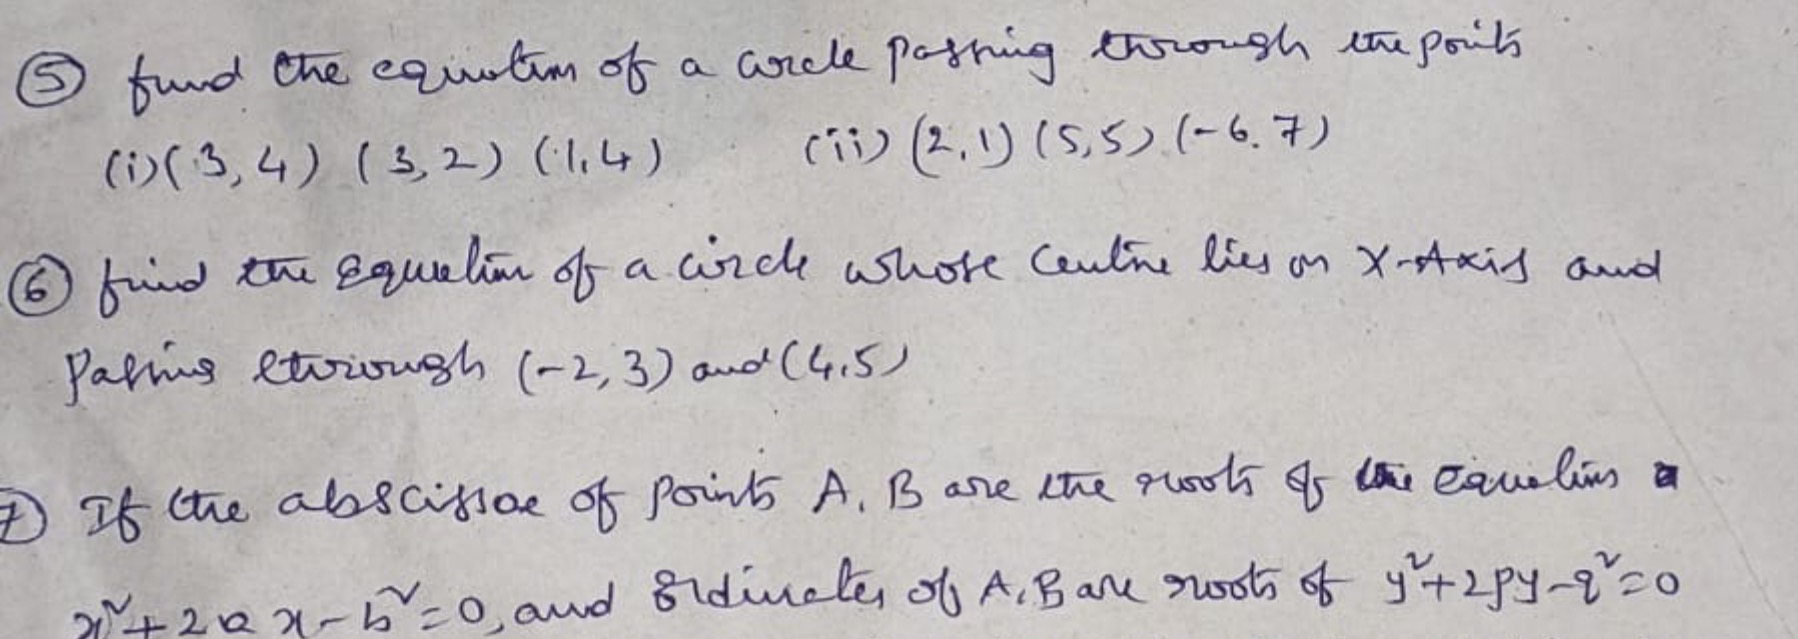 ⑤ find the equation of a circle passing through the points
(i) (3,4) (3,2) (1,4) (ii) (2,1) (5,5) (-6.7)
⑥ find the equation of a circle whose Centre lies on X-Axis and
Passing through (-2,3) and (4,5)
⑦ If the abscissae of points A, B are the roots of the equations
x²+2ax-b²=0, and ordinates of A, B are roots of y²+2py-q²=0